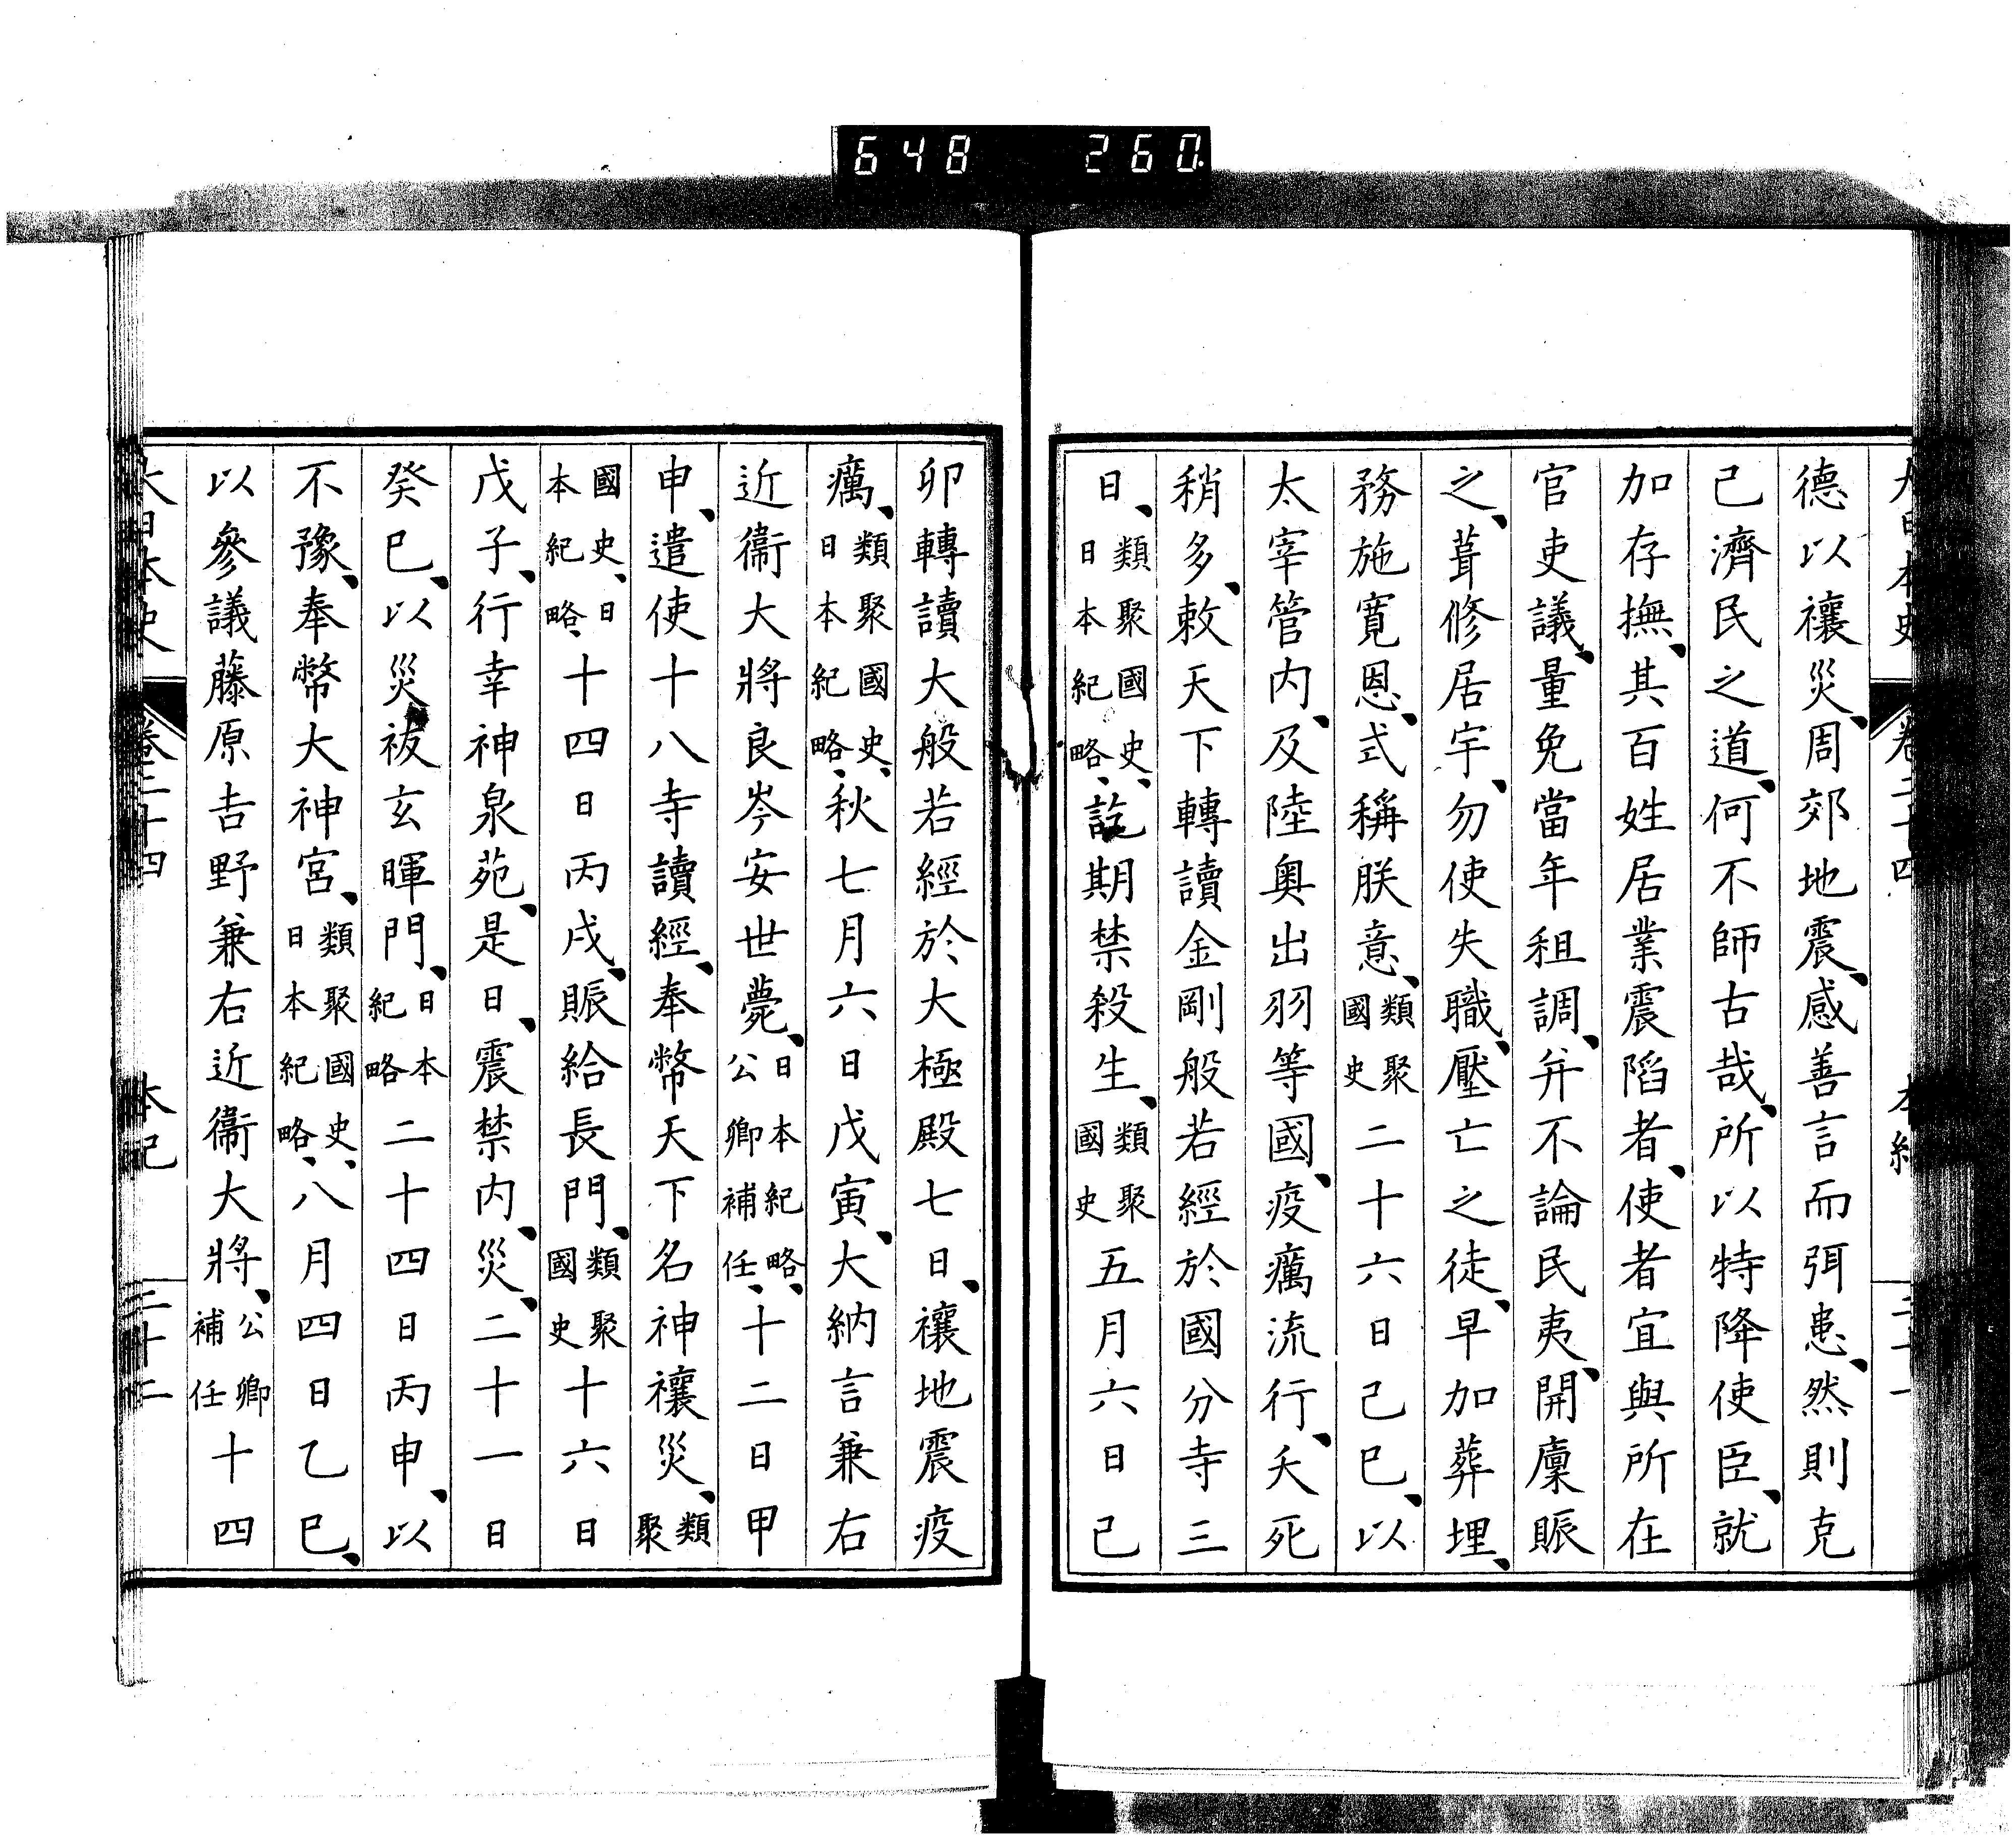 648 260
大日本史 卷二十四 本紀
德以禳災、周郊地震、感善言而弭患、然則克
己濟民之道、何不師古哉、所以特降使臣、就
加存撫、其百姓居業震陷者、使者宜與所在
官吏議、量免當年租調、并不論民夷、開廩賑
之、葺修居宇、勿使失職、壓亡之徒、早加葬埋、
務施寬恩、式稱朕意、類聚國史二十六日己巳、以
太宰管内、及陸奥出羽等國、疫癘流行、夭死
稍多、敕天下轉讀金剛般若經於國分寺三
日、類聚國史、日本紀略、訖期禁殺生、類聚國史五月六日己
卯轉讀大般若經於大極殿七日、禳地震疫
癘、類聚國史、日本紀略、秋七月六日戊寅、大納言兼右
近衞大將良岑安世薨、日本紀略、公卿補任、十二日甲
申、遣使十八寺讀經、奉幣天下名神禳災、類聚
國史、日本紀略、十四日丙戌、賑給長門、類聚國史十六日
戊子、行幸神泉苑、是日、震禁内、災、二十一日
癸巳、以災祓玄暉門、日本紀略二十四日丙申、以
不豫、奉幣大神宮、類聚國史、日本紀略、八月四日乙巳、
以參議藤原吉野兼右近衞大將、公卿補任十四
大日本史 卷二十四 本紀 三十二